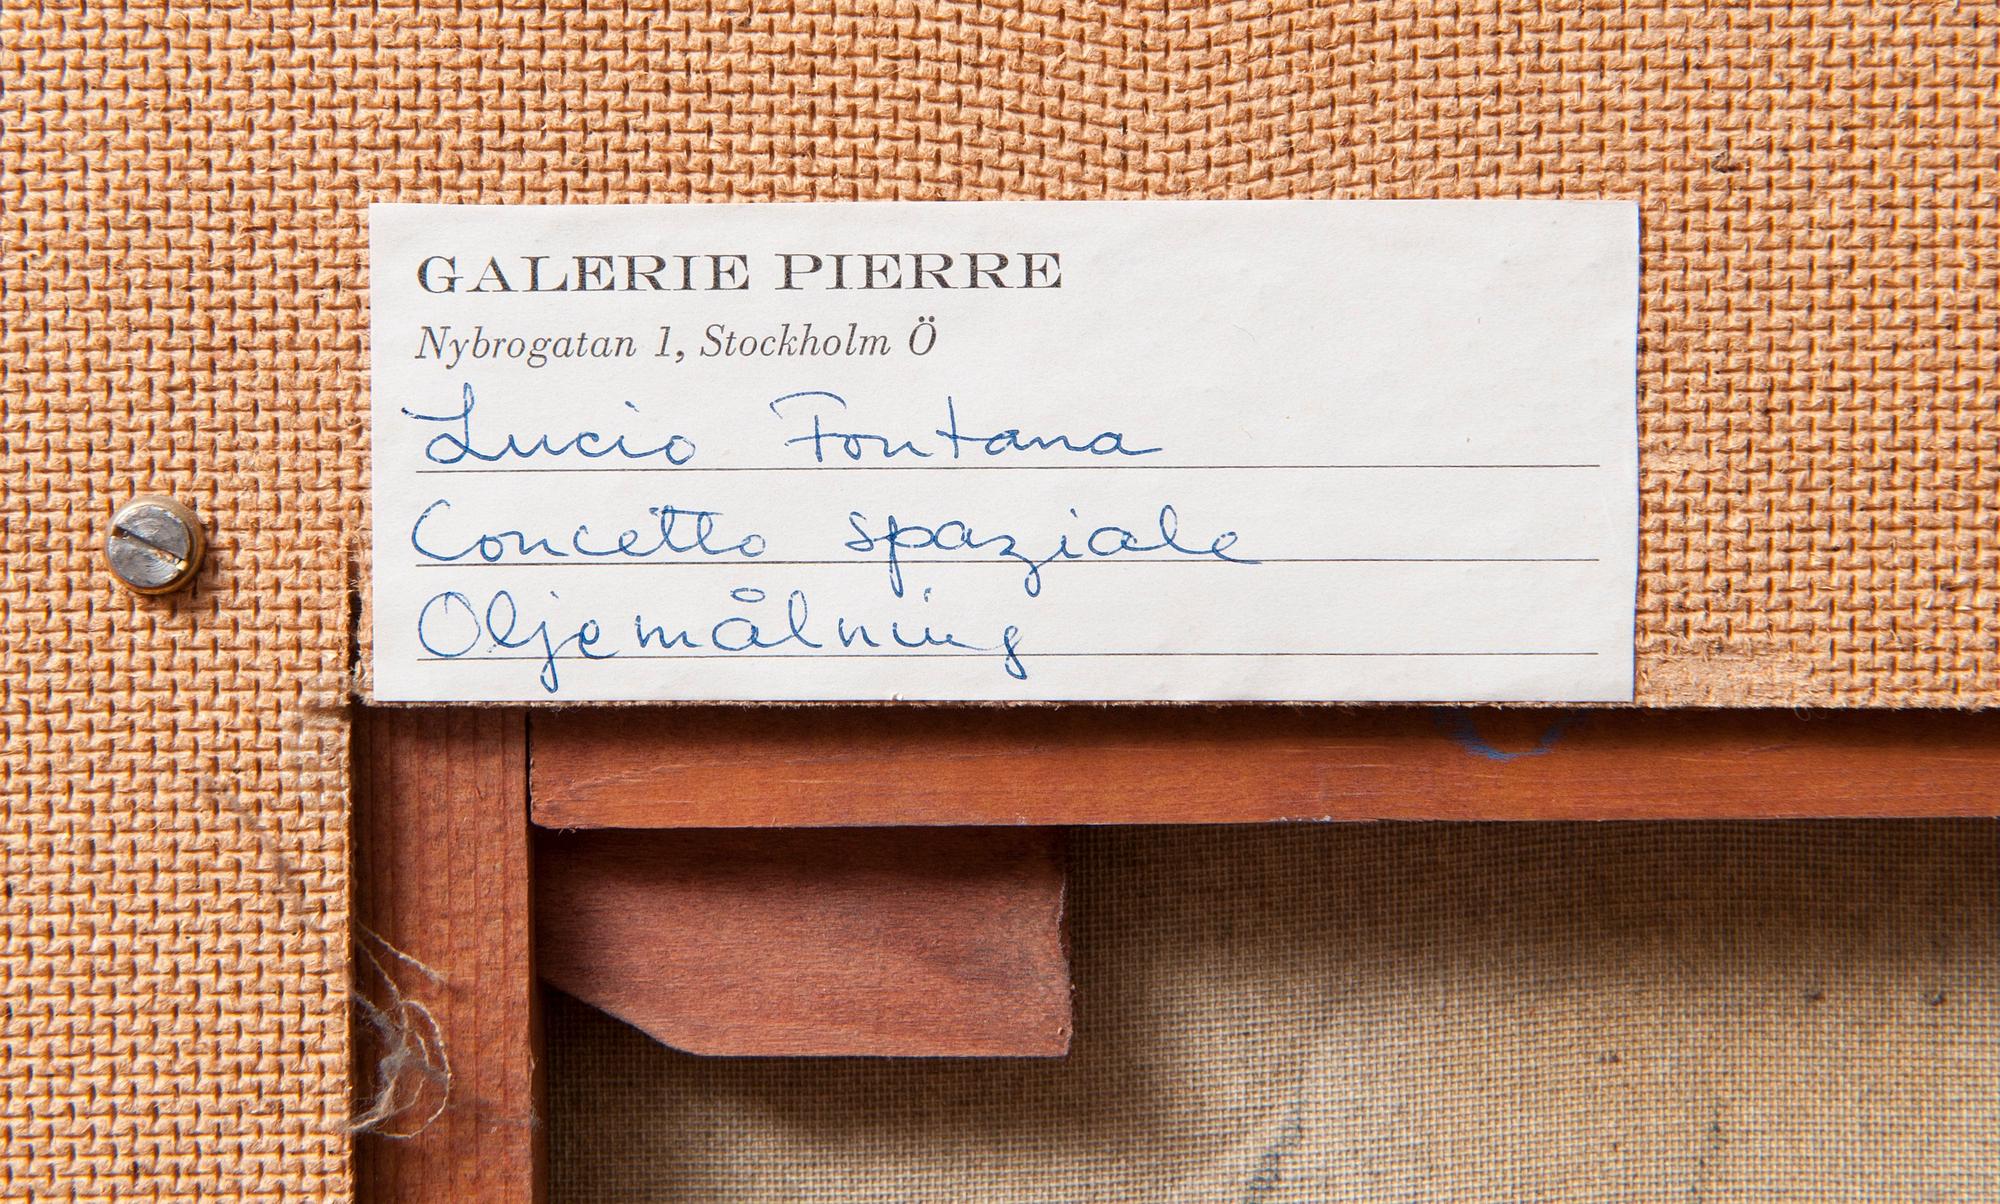 GALERIE PIERRE
Nybrogatan 1, Stockholm Ö
Lucio Fontana
Concetto spaziale
Oljemålning